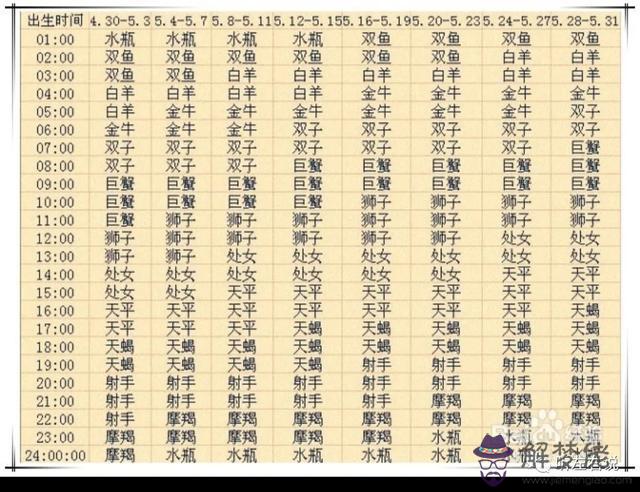 出生时间 4.30-5.3 5.4-5.7 5.8-5.11 5.12-5.15 5.16-5.19 5.20-5.23 5.24-5.27 5.28-5.31
01:00 水瓶 水瓶 水瓶 水瓶 双鱼 双鱼 双鱼 双鱼
02:00 双鱼 双鱼 双鱼 双鱼 双鱼 双鱼 白羊 白羊
03:00 双鱼 双鱼 白羊 白羊 白羊 白羊 白羊 白羊
04:00 白羊 白羊 白羊 白羊 金牛 金牛 金牛 金牛
05:00 白羊 金牛 金牛 金牛 金牛 金牛 金牛 双子
06:00 金牛 金牛 金牛 双子 双子 双子 双子 双子
07:00 双子 双子 双子 双子 双子 双子 双子 巨蟹
08:00 双子 双子 双子 巨蟹 巨蟹 巨蟹 巨蟹 巨蟹
09:00 巨蟹 巨蟹 巨蟹 巨蟹 巨蟹 巨蟹 巨蟹 巨蟹
10:00 巨蟹 巨蟹 巨蟹 巨蟹 狮子 狮子 狮子 狮子
11:00 巨蟹 狮子 狮子 狮子 狮子 狮子 狮子 狮子
12:00 狮子 狮子 狮子 狮子 狮子 狮子 处女 处女
13:00 狮子 狮子 处女 处女 处女 处女 处女 处女
14:00 处女 处女 处女 处女 处女 处女 天平 天平
15:00 处女 处女 天平 天平 天平 天平 天平 天平
16:00 天平 天平 天平 天平 天平 天平 天平 天蝎
17:00 天平 天平 天平 天蝎 天蝎 天蝎 天蝎 天蝎
18:00 天蝎 天蝎 天蝎 天蝎 天蝎 天蝎 天蝎 天蝎
19:00 天蝎 天蝎 天蝎 天蝎 射手 射手 射手 射手
20:00 射手 射手 射手 射手 射手 射手 射手 射手
21:00 射手 射手 射手 射手 射手 摩羯 摩羯 摩羯
22:00 射手 摩羯 摩羯 摩羯 摩羯 摩羯 摩羯
23:00 摩羯 摩羯 摩羯 摩羯 水瓶 水瓶 水瓶
24:00:00 摩羯 水瓶 水瓶 水瓶 水瓶
解梦佬
www.jiemengiao.com